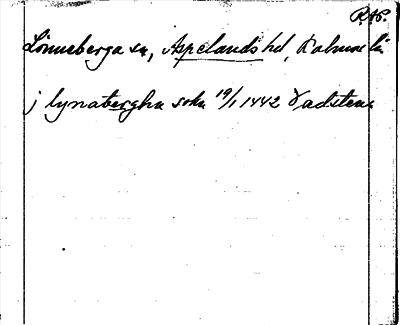 RAp.
Lönneberga sn, Aspelands hd, Kalmar län
j lynabergha sokn 19/1 1442 Vadstena